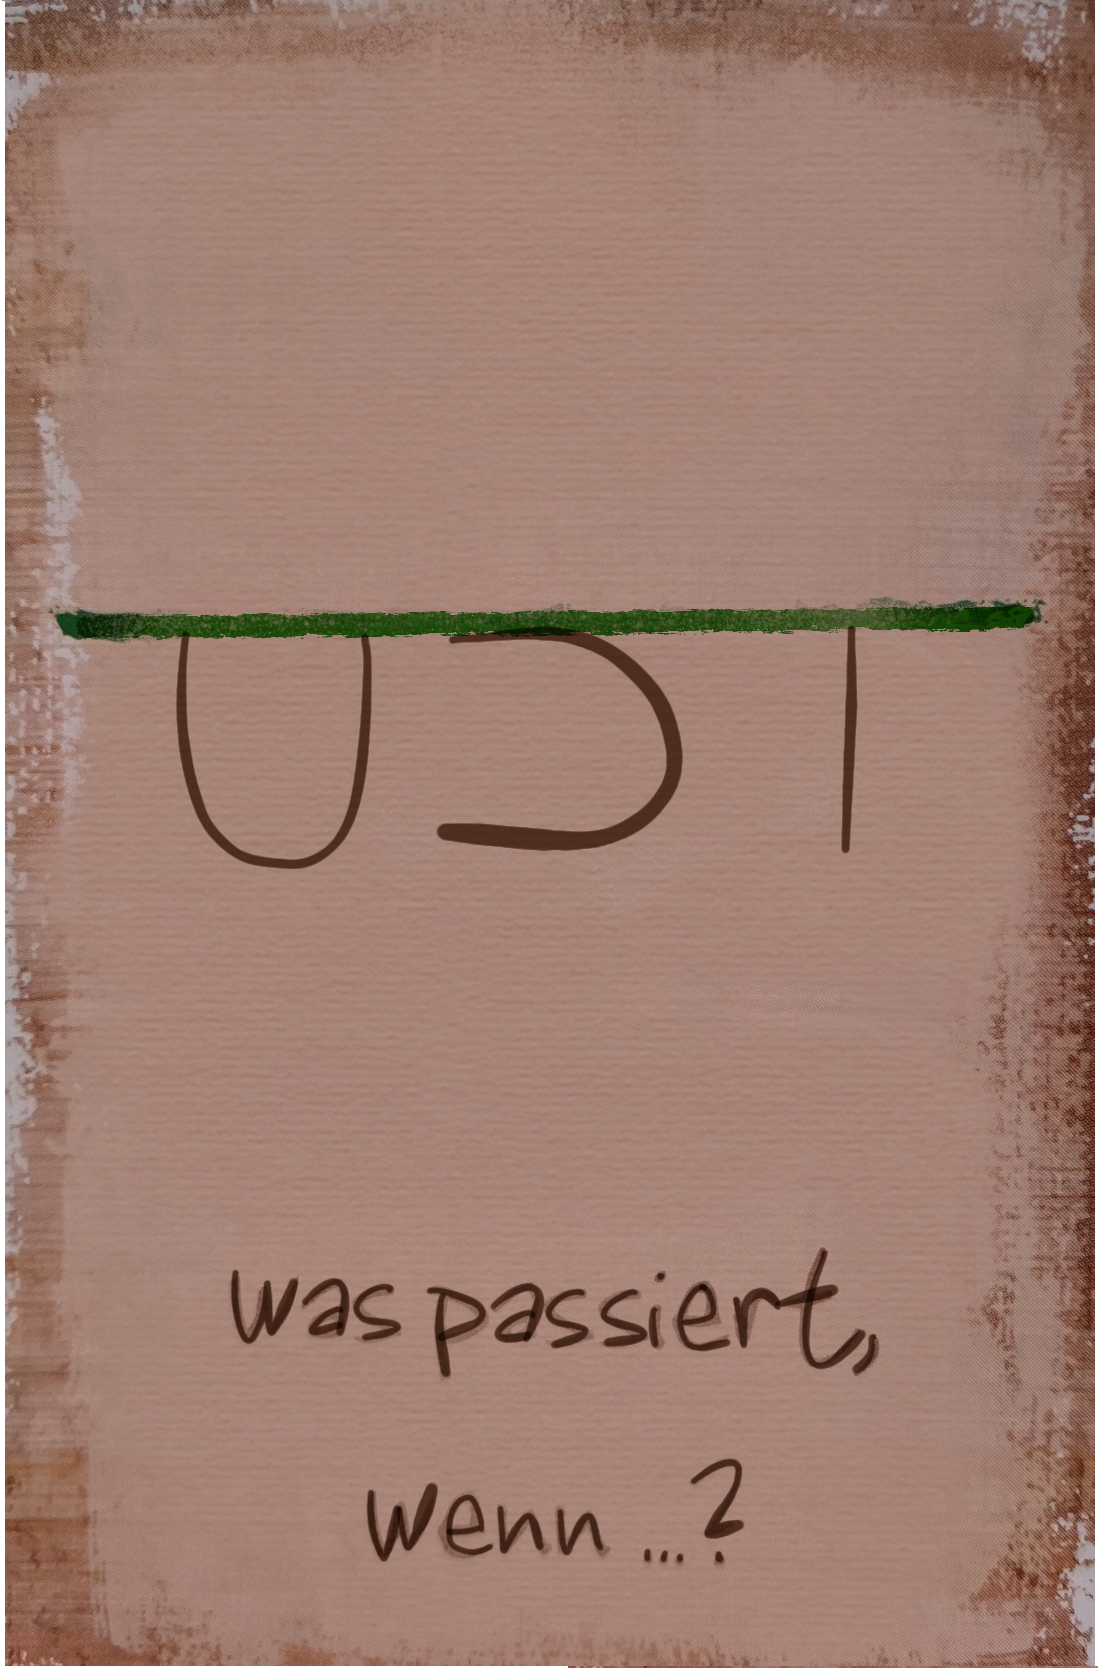 was passiert,
wenn ...?